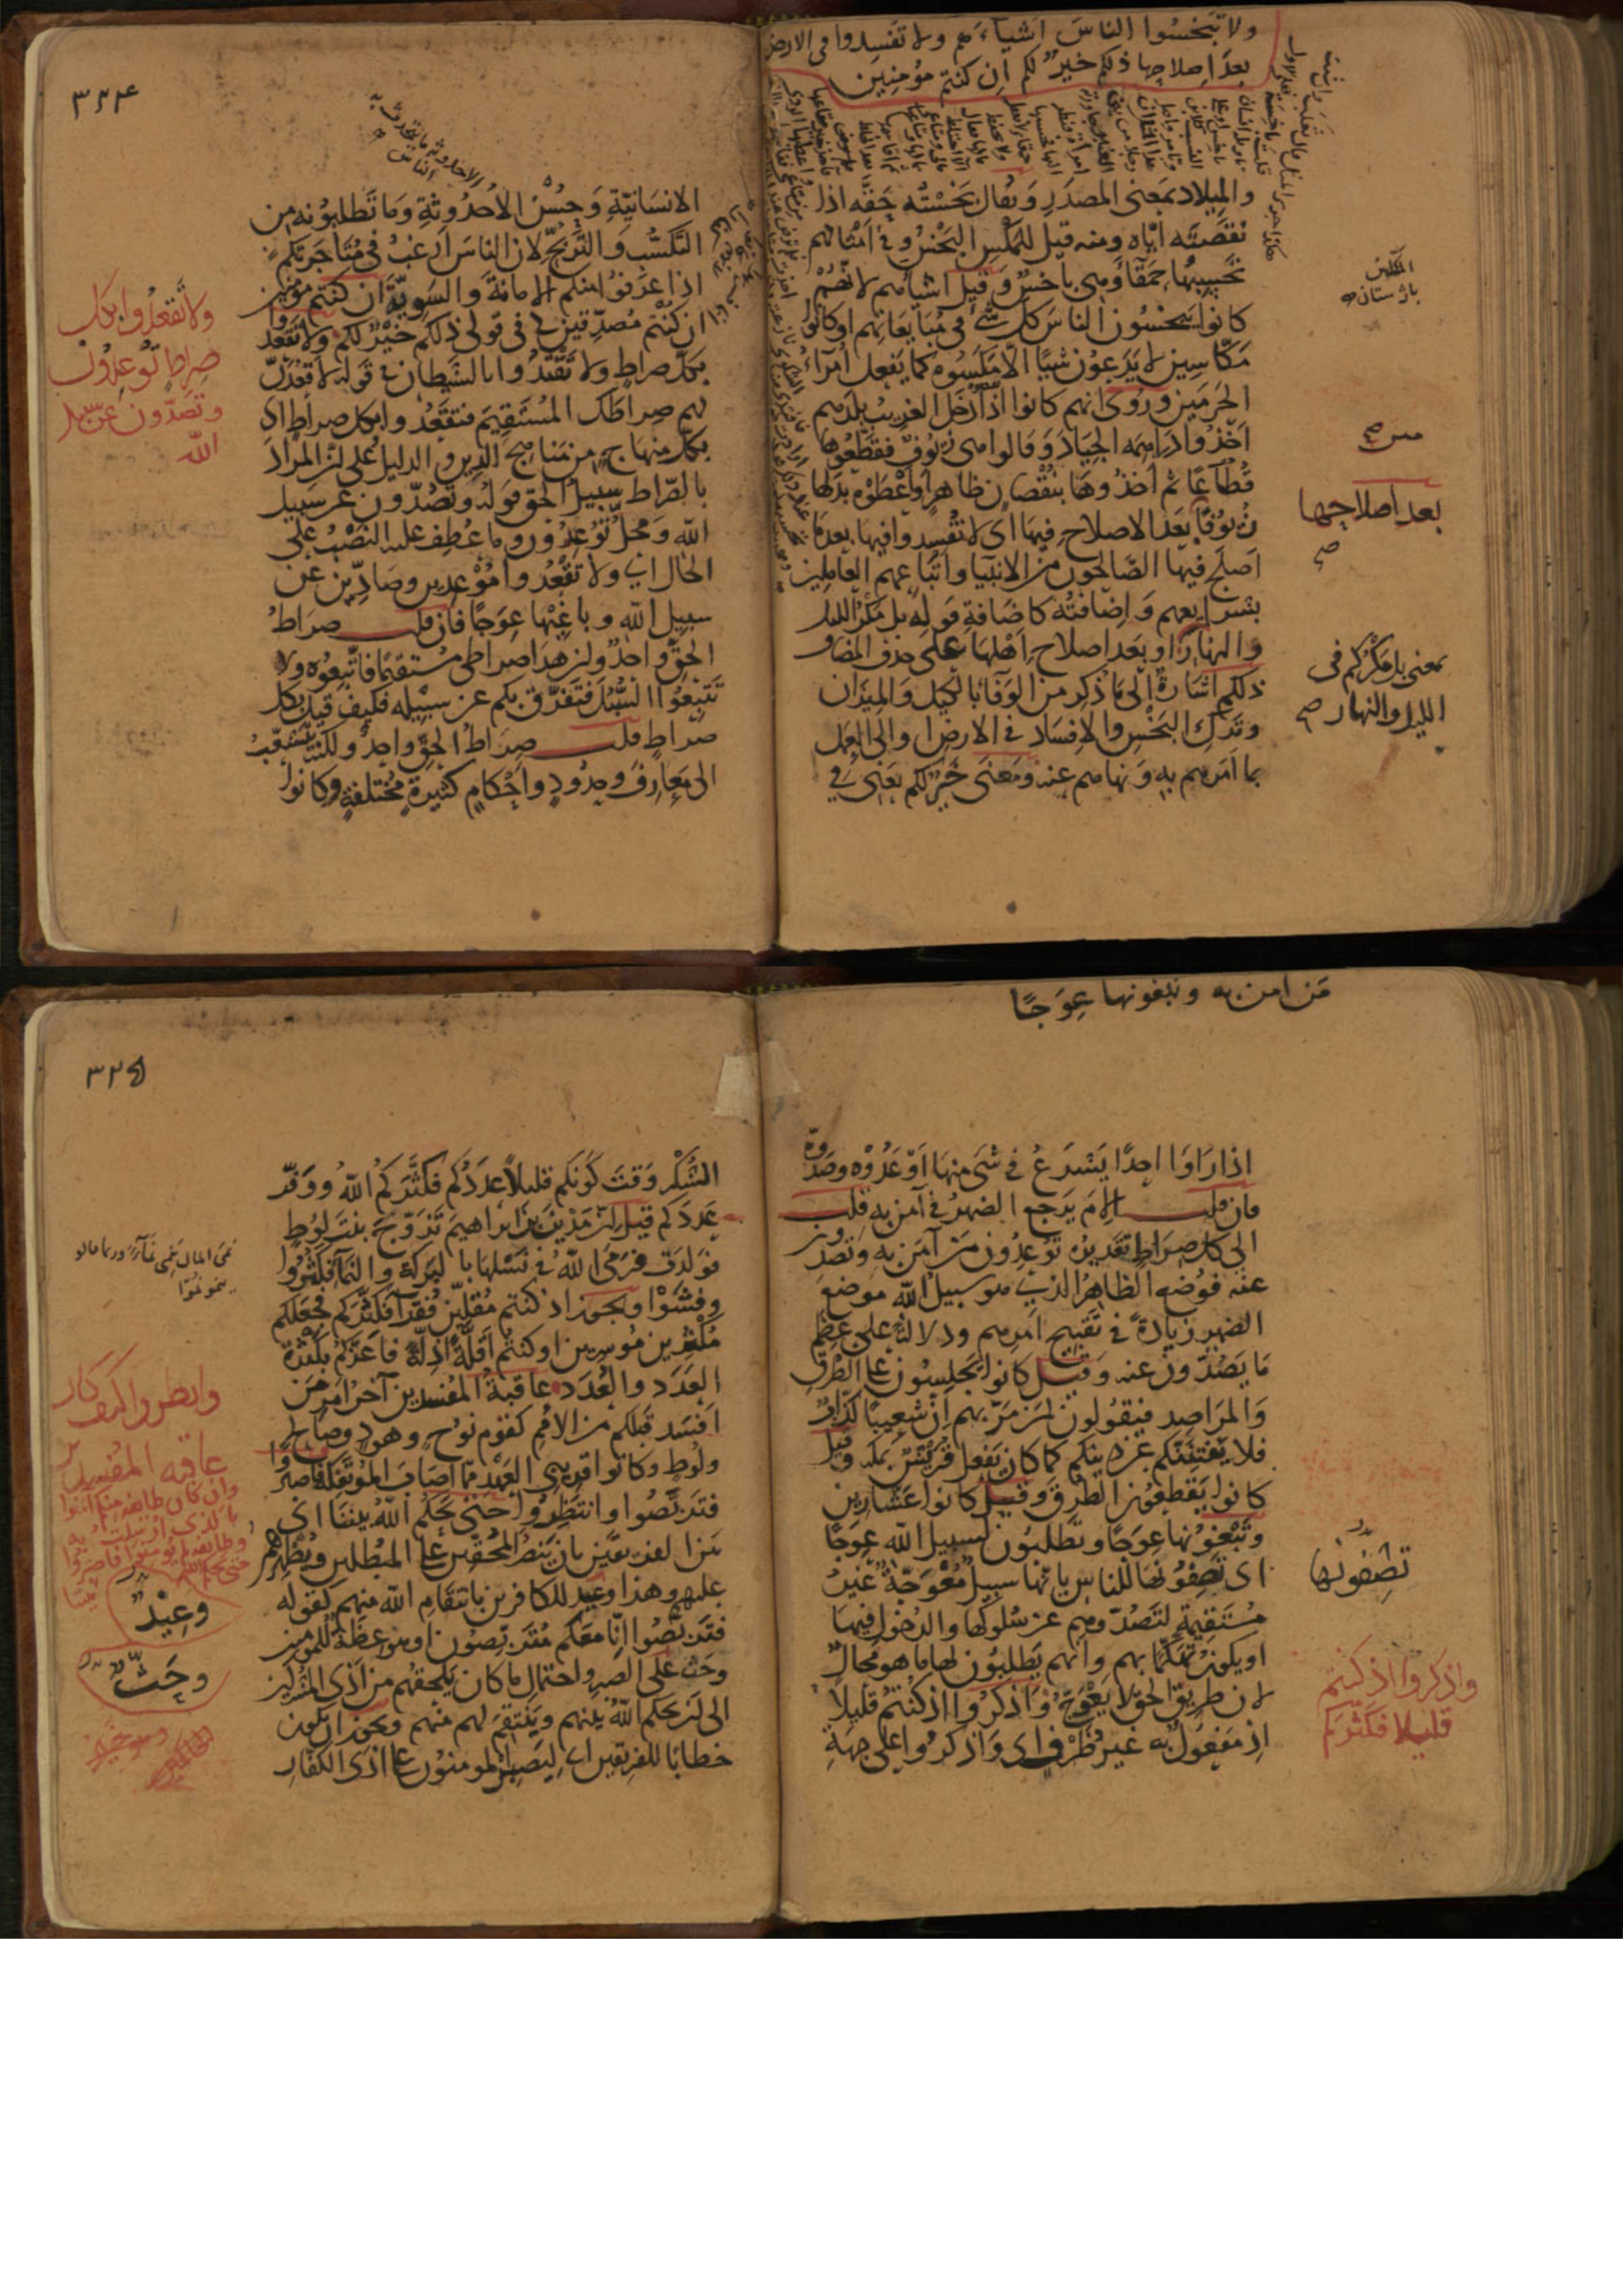 ولا تبخسوا الناس اشياءهم ولا تفسدوا فى الارض
بعد اصلاحها ذلكم خير لكم ان كنتم مؤمنين
والميلاد بمعنى المصدر ويقال بخسته حقه اذا
نقصته اياه ومنه قيل للمكس البخس وفى امثالهم
تحسبها حمقاء وهى باخس وقيل اشياءهم لانهم
كانوا يبخسون الناس كل شئ فى مبايعاتهم او كانوا
مكاسين لا يدعون شيا الا مكسوه كما يفعل امراء
الحرمين وروى انهم كانوا اذا دخل الغريب بلدهم
اخذوا دراهمه الجياد وقالوا هى زيوف فقطعوها
قطاعا ثم اخذوها بنقصان ظاهر او اعطوه بدلها
زيوفا بعد الاصلاح فيها اى لا تفسدوا فيها بعد ما
اصلح فيها الصالحون من الانبيا واتباعهم العاملين
بشرايعهم واضافته كاضافة قوله بل مكر الليل
والنهار او بعد اصلاح اهلها على حذف المضاف
ذلكم اشارة الى ما ذكر من الوفا بالكيل والميزان
وترك البخس والافساد فى الارض او الى العمل
بما امرهم به ونهاهم عنه ومعنى خير لكم يعنى فى
المكس
باژ ستان
بعد اصلاحها
بمعنى بل مكركم فى
الليل والنهار
٣٢٤
الاحدوثة ما يتحدث به
الناس
الانسانية وحسن الاحدوثة وما تطلبونه من
التكسب والتربح لان الناس ارغب فى متاجرتكم
اذا عرفوا منكم الامانة والسوية ان كنتم مؤمنين
ان كنتم مصدقين لى فى قولى ذلكم خير لكم ولا تقعدوا
بكل صراط ولا تقتدوا بالشيطان فى قوله لاقعدن
لهم صراطك المستقيم فتقعدوا بكل صراط اى
بكل منهاج من مناهج الدين والدليل على ان المراد
بالصراط سبيل الحق قوله وتصدون عن سبيل
الله ومحل توعدون وما عطف عليه النصب على
الحال اى ولا تقعدوا موعدين وصادين عن
سبيل الله وباغيها عوجا فان قلت صراط
الحق واحد وان هذا صراطى مستقيما فاتبعوه ولا
تتبعوا السبل فتفرق بكم عن سبيله فكيف قيل بكل
صراط قلت صراط الحق واحد ولكنه يتشعب
الى معارف وحدود واحكام كثيرة مختلفة وكانوا
ولا تقعدوا بكل
صراط توعدون
وتصدون عن سبيل
الله
من امن به وتبغونها عوجا
اذا راوا احدا يشرع فى شى منها اوعدوه وصدوه
فان قلت الام يرجع الضمير فى آمن به قلت
الى كل صراط تقديره توعدون من آمن به وتصدون
عنه فوضع الظاهر الذى هو سبيل الله موضع
الضمير زيادة فى تقبيح امرهم ودلالة على عظم
ما يصدون عنه وقيل كانوا يجلسون على الطرق
والمراصد فيقولون لمن مر بهم ان شعيبا كذاب
فلا يفتننكم عن دينكم كما كان يفعل قريش بمكة وقيل
كانوا يقطعون الطرق وقيل كانوا عشارين
وتبغونها عوجا وتطلبون لسبيل الله عوجا
اى تصفونها للناس بانها سبيل معوجة غير
مستقيمة لتصدوهم عن سلوكها والدخول فيها
او يكون تهكما بهم وانهم يطلبون لها ما هو محال
لان طريق الحق لا يعوج واذكروا اذ كنتم قليلا
اذ مفعول به غير ظرف اى واذكروا على جهة
تصفونها
واذكروا اذ كنتم
قليلا فكثركم
٣٢٥
الشكر وقت كونكم قليلا عددكم فكثركم الله ووفر
عددكم قيل ان مدين بن ابراهيم تزوج بنت لوط
فولدت فرمى الله فى نسلها بالبركة والنماء فكثروا
وفشوا ويجوز اذ كنتم مقلين فقراء فكثركم فجعلكم
مكثرين موسرين او كنتم اقلة اذلة فاعزكم بكثرة
العدد والعدد عاقبة المفسدين آخر امر من
افسد قبلكم من الامم كقوم نوح وهود وصالح
ولوط وكانوا قريبى العهد مما اصاب المؤتفكة فاصبروا
فتربصوا وانتظروا حتى يحكم الله بيننا اى
بين الفريقين بان ينصر المحقين على المبطلين ويظهرهم
عليهم وهذا وعيد للكافرين بانتقام الله منهم كقوله
فتربصوا انا معكم متربصون او هو عظة للمومنين
وحث على الصبر واحتمال ما كان يلحقهم من اذى المشركين
الى ان يحكم الله بينهم وينتقم لهم منهم ويجوز ان يكون
خطابا للفريقين اى ليصبر المومنون على اذى الكفار
وانظروا كيف كان
عاقبة المفسدين
وان كان طائفة منكم آمنوا
بالذى ارسلت به
وطائفة لم يومنوا فاصبروا
حتى يحكم الله بيننا
وعيد
وحث
وهو خير
الحاكمين